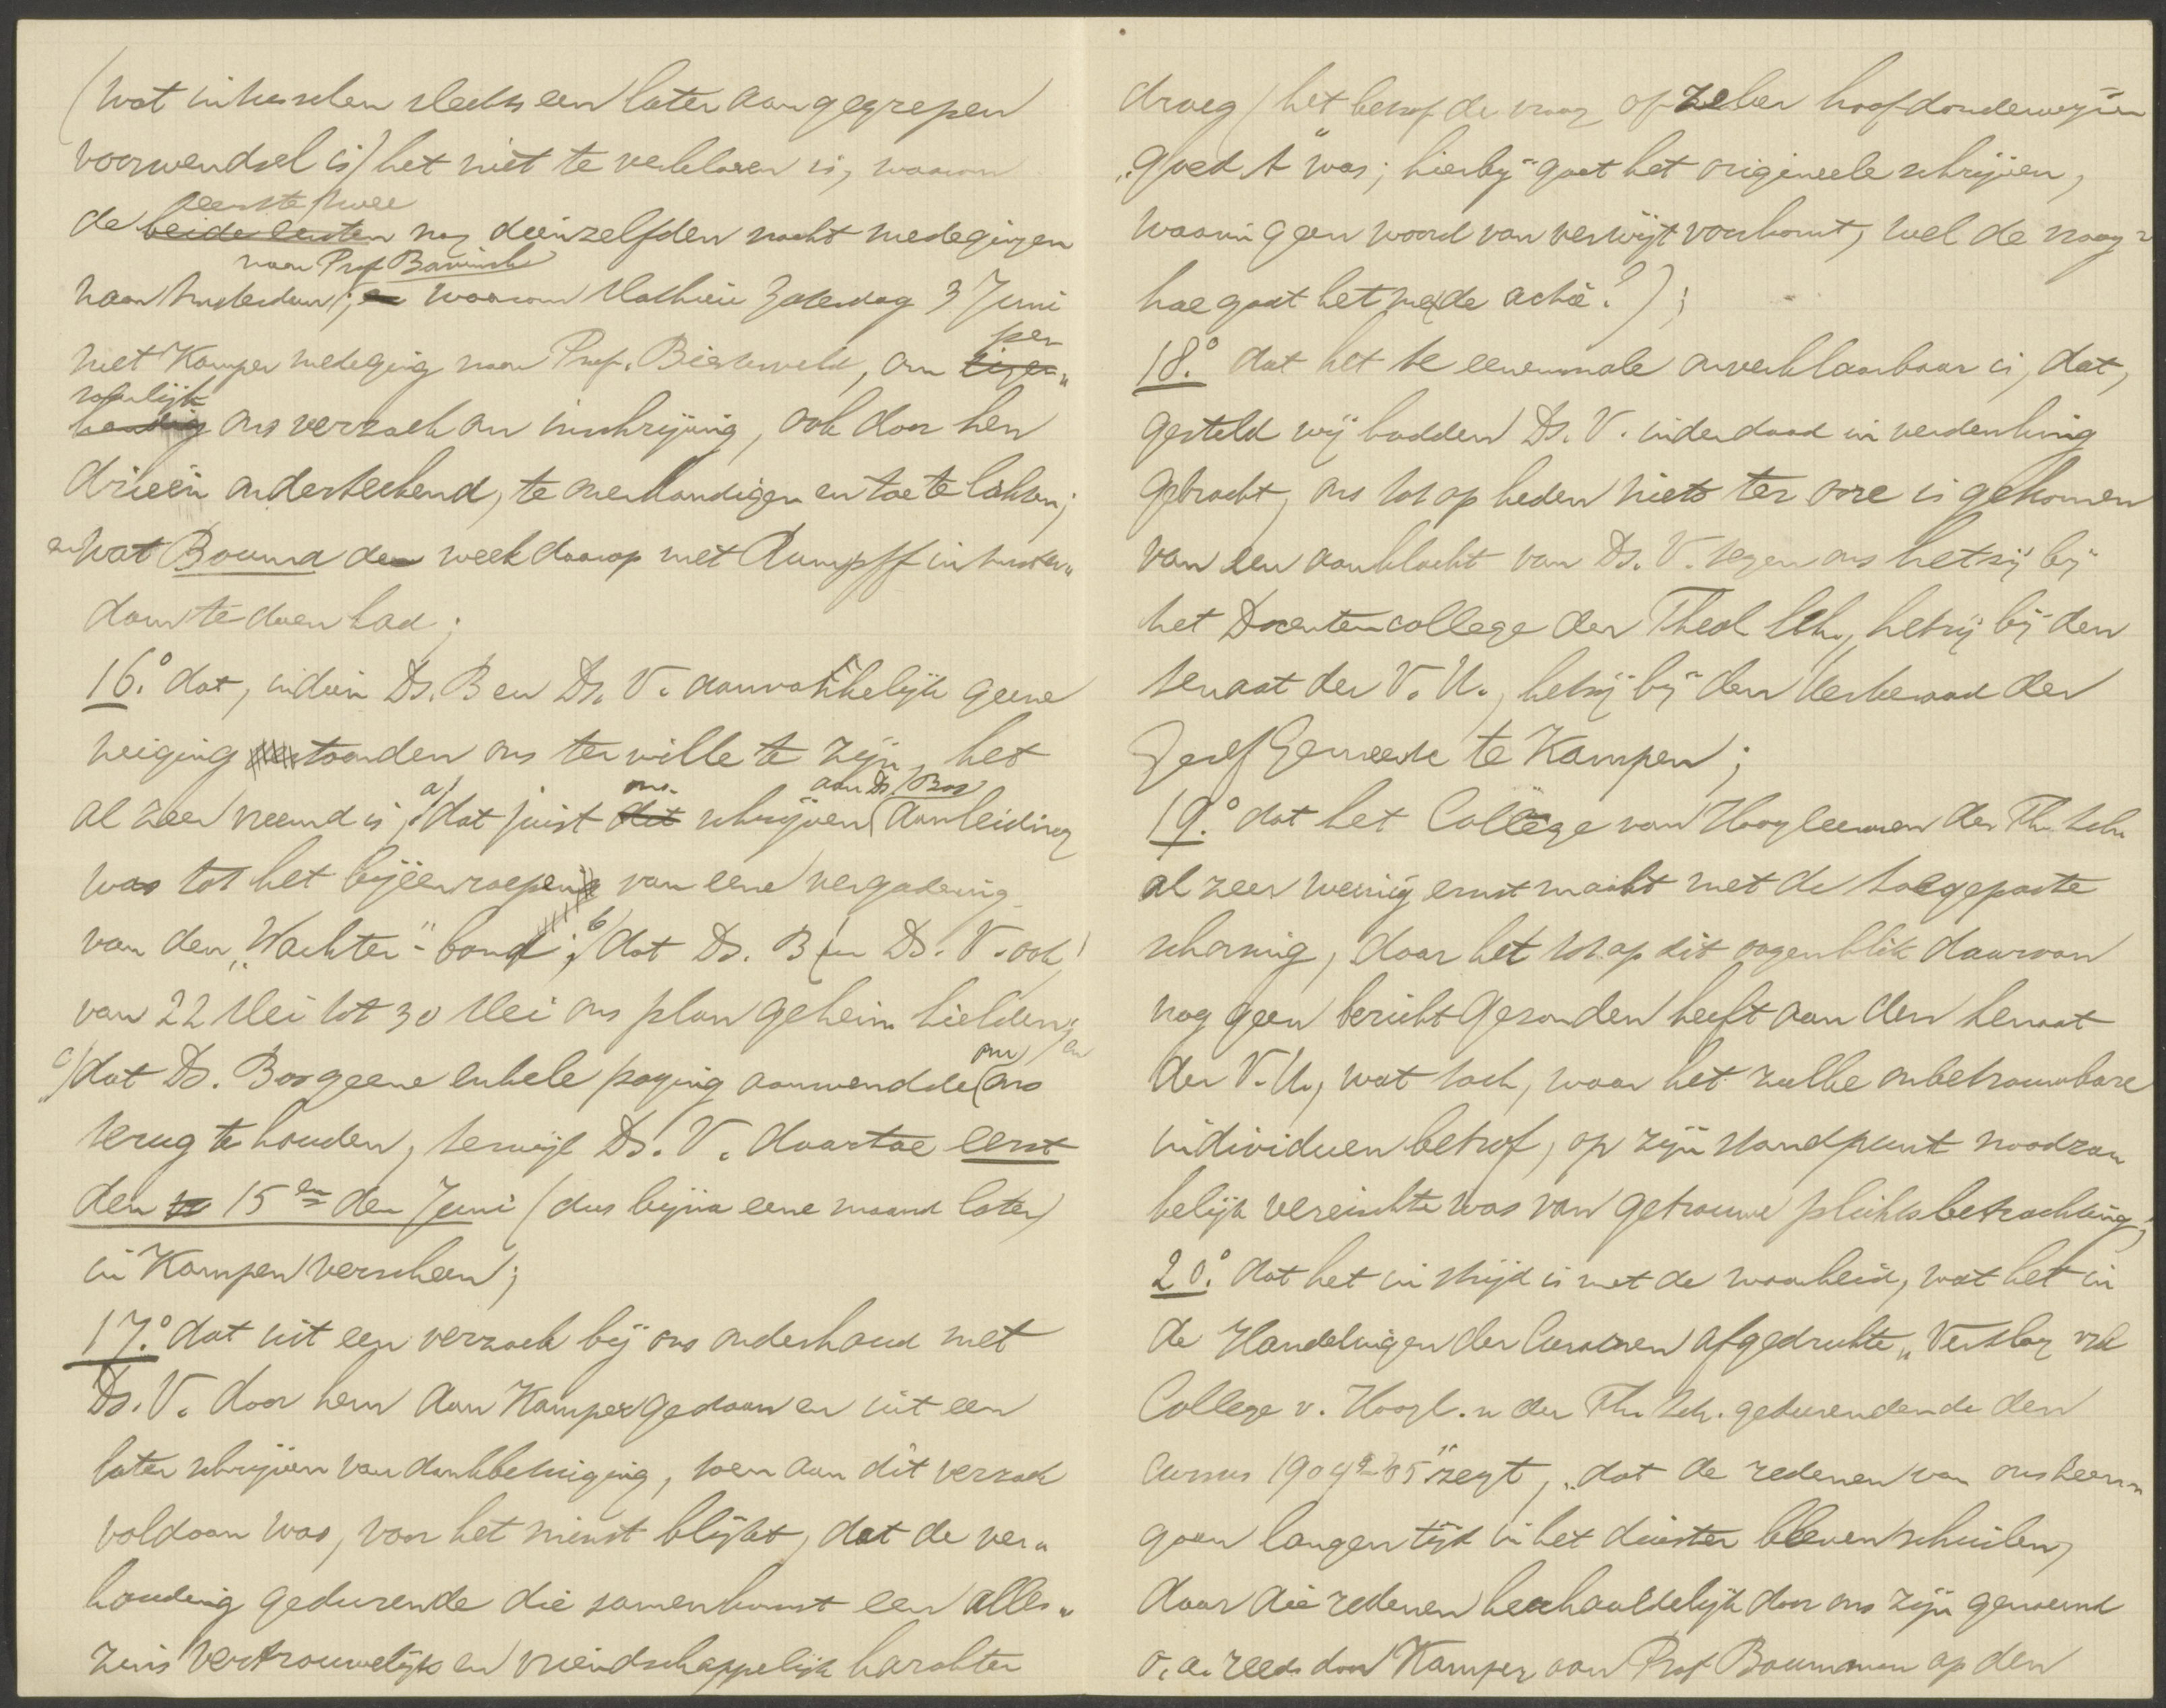 (wat intusschen slechts een later aangegrepen
voorwendsel is) het niet te verklaren is, waarom
eerste twee
de beide eersten nog dienzelfden nacht medegingen
naar Prof Bavinck
naar Amsterdam; en waarom Mathieu Zaterdag 3 Juni
met Kamper medeging naar Prof. Biesterveld, om eigen„
per
soonlijk
handig ons verzoek om inschrijving, ook door hen
drieën onderteekend, te overhandigen en toe te lichten;
en wat Bouma de week daarop met Rumpff in Amster„
dam te doen had;
16.° dat, indien Ds. B en Ds. V. aanvankelijk geene
neiging toonden ons ter wille te zijn, het
al zeer vreemd is, a) dat juist dit ons schrijven aan Ds. Bos aanleiding
was tot het bijeenroepen van eene vergadering
van den „Wachter"-bond; b) dat Ds. B en Ds. V. ook
van 22 Mei tot 30 Mei ons plan geheim hielden; en
c) dat Ds. Bos geene enkele poging aanwendde om ons
terug te houden, terwijl Ds. V. daartoe eerst
den 15en der Juni (dus bijna eene maand later)
in Kampen verscheen;
17.° dat uit een verzoek bij ons onderhoud met
Ds. V. door hem aan Kamper gedaan en uit een
later schrijven van dankbetuiging, toen aan dit verzoek
voldaan was, voor het minst blijkt, dat de ver„
houding gedurende die samenkomst een alles„
zins vertrouwelijk en vriendschappelijk karakter
droeg (het betrof de vraag of zeker hoofdonderwijzer
„goed A" was; hierbij gaat het origineele schrijven,
waarin geen woord van verwijt voorkomt, wel de vraag:
hoe gaat het met de actie?);
18.° dat het te eenenmale onverklaarbaar is, dat,
gesteld wij hadden Ds. V. inderdaad in verdenking
gebracht, ons tot op heden niets ter oore is gekomen
van een aanklacht van Ds. V. tegen ons hetzij bij
het Docentencollege der Theol Sch., hetzij bij den
Senaat der V. U., hetzij bij den Kerkeraad der
Geref Gemeente te Kampen;
19.° dat het College van Hoogleeraren der Th. Sch
al zeer weinig ernst maakt met de toegepaste
schorsing, daar het tot op dit oogenblik daarvan
nog geen bericht gezonden heeft aan den Senaat
der V. U., wat toch, waar het zulke onbetrouwbare
individuen betrof, op zijn standpunt noodza
kelijk vereischte was van getrouwe plichtsbetrachting;
20.° dat het in strijd is met de waarheid, wat het in
de Handelingen der Curatoren afgedrukte „Verslag v/h
College v. Hoogl.n der Th. Sch. gedurendende den
Cursus 1904-'05" zegt, „dat de redenen van ons heen„
gaan langen tijd in het duister bleven schuilen,
daar die redenen herhaaldelijk door ons zijn genoemd
o.a. reeds door Kamper aan Prof Bouwman op den